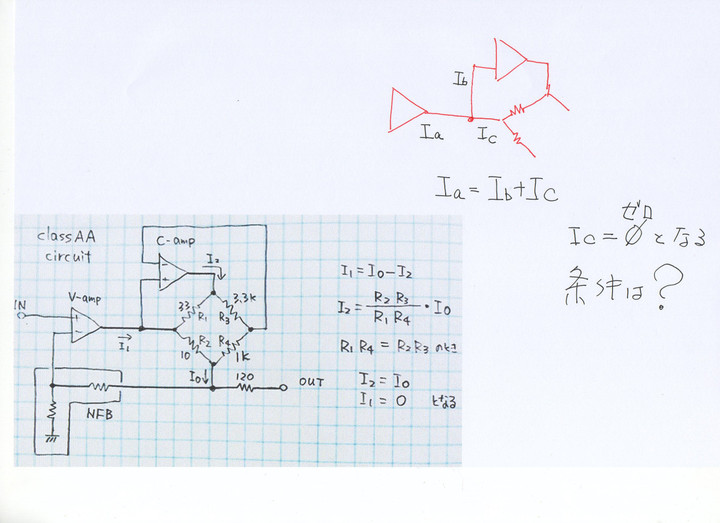 Ib
Ia
Ic
Ia = Ib+Ic
ゼロ
Ic = ∅ となる
条件は?
classAA
circuit
C-amp
I₂
-
+
V-amp
33
R₁
3.3k
R₃
IN
+
-
I₁
R₂
10
R₄
1k
I₀
120
OUT
NFB
I₁ = I₀-I₂
I₂ = R₂ R₃ / R₁ R₄ ・ I₀
R₁ R₄ = R₂ R₃ のとき
I₂ = I₀
I₁ = 0 となる